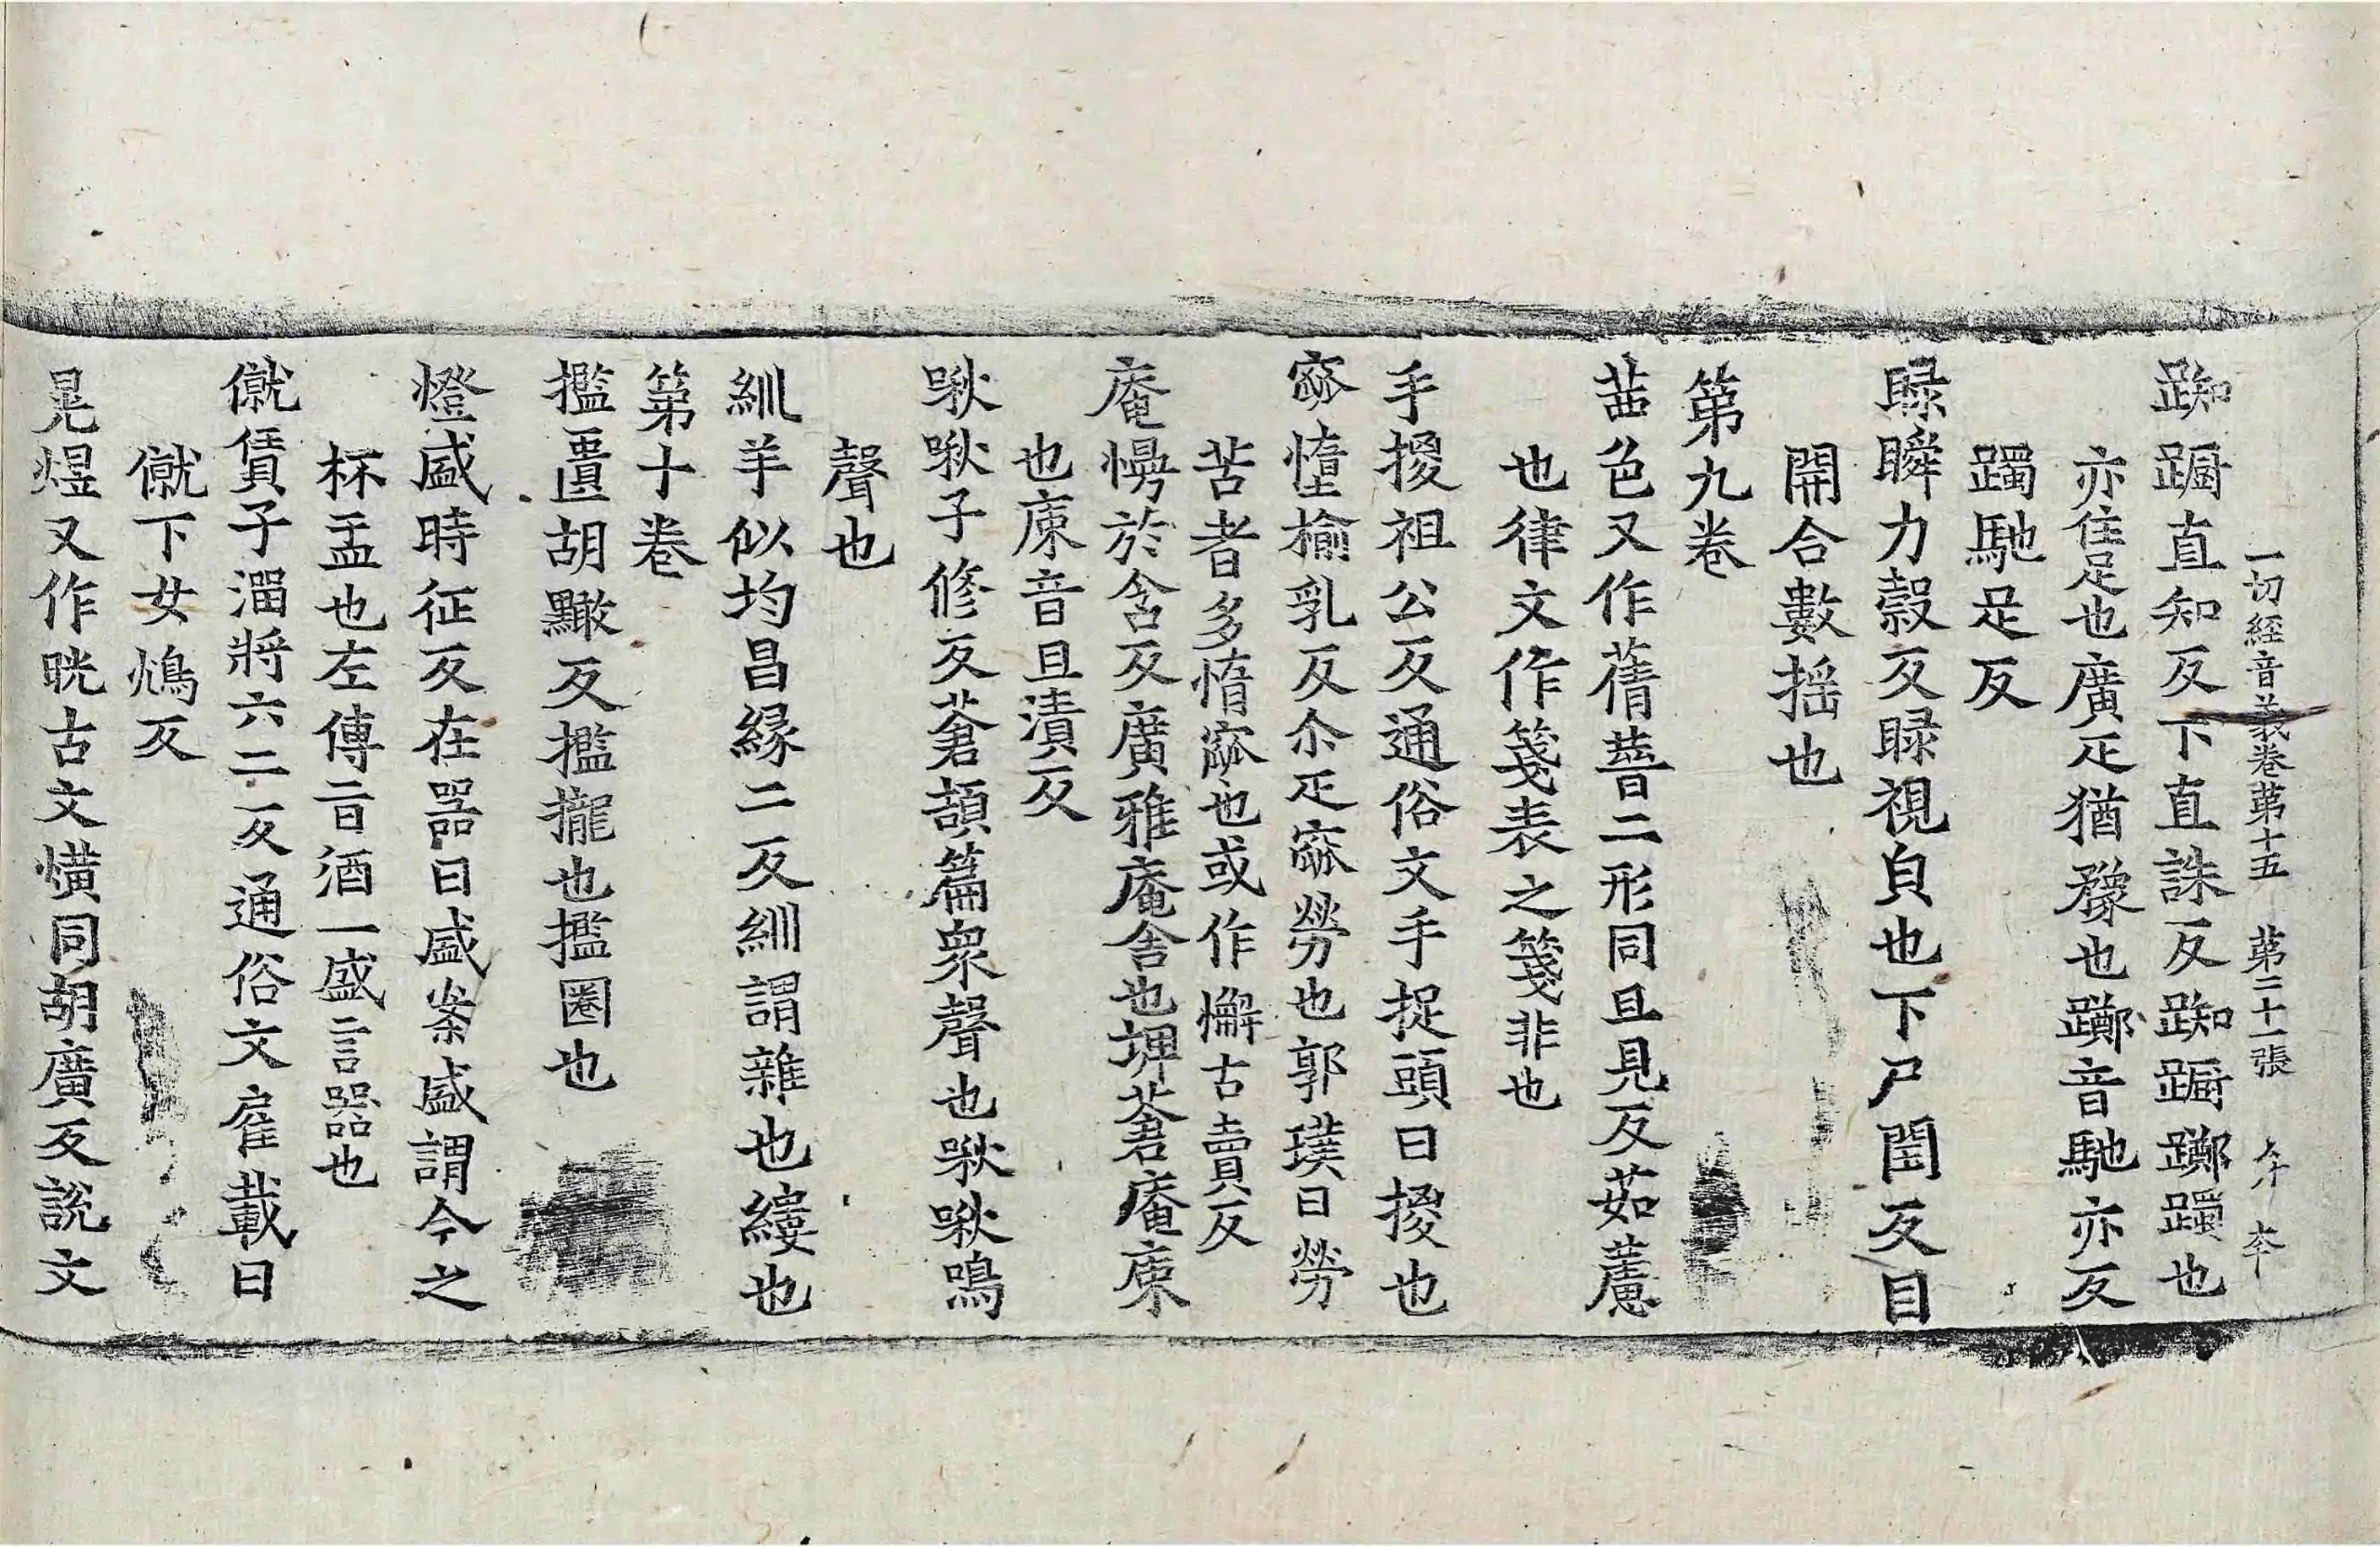 一切經音義卷第十五 第二十一張
踟蹰直知反下直誅反踟蹰躑躅也
亦住足也廣疋猶豫也躑音馳亦反
躅馳足反
睩瞬力穀反睩視皃也下尸閏反目
開合數揺也
第九卷
茜色又作蒨𦻏二形同且見反茹藘
也律文作箋表之箋非也
手㨑祖公反通俗文手捉頭曰㨑也
窳惰榆乳反尒疋窳勞也郭璞曰勞
苦者多惰窳也或作懈古賣反
庵㡢於含反廣雅庵舍也埤蒼庵庲
也庲音且漬反
啾啾子修反蒼頡篇衆聲也啾啾鳴
聲也
紃羊似均昌緣二反紃謂雜也縷也
第十卷
㩜匷胡黤反㩜攏也㩜圈也
燈盛時征反在器曰盛粢盛謂今之
杯盂也左傳㫖酒一盛言器也
僦賃子溜將六二反通俗文雇載曰
僦下女鴆反
晃煜又作晄古文㶇同胡廣反說文